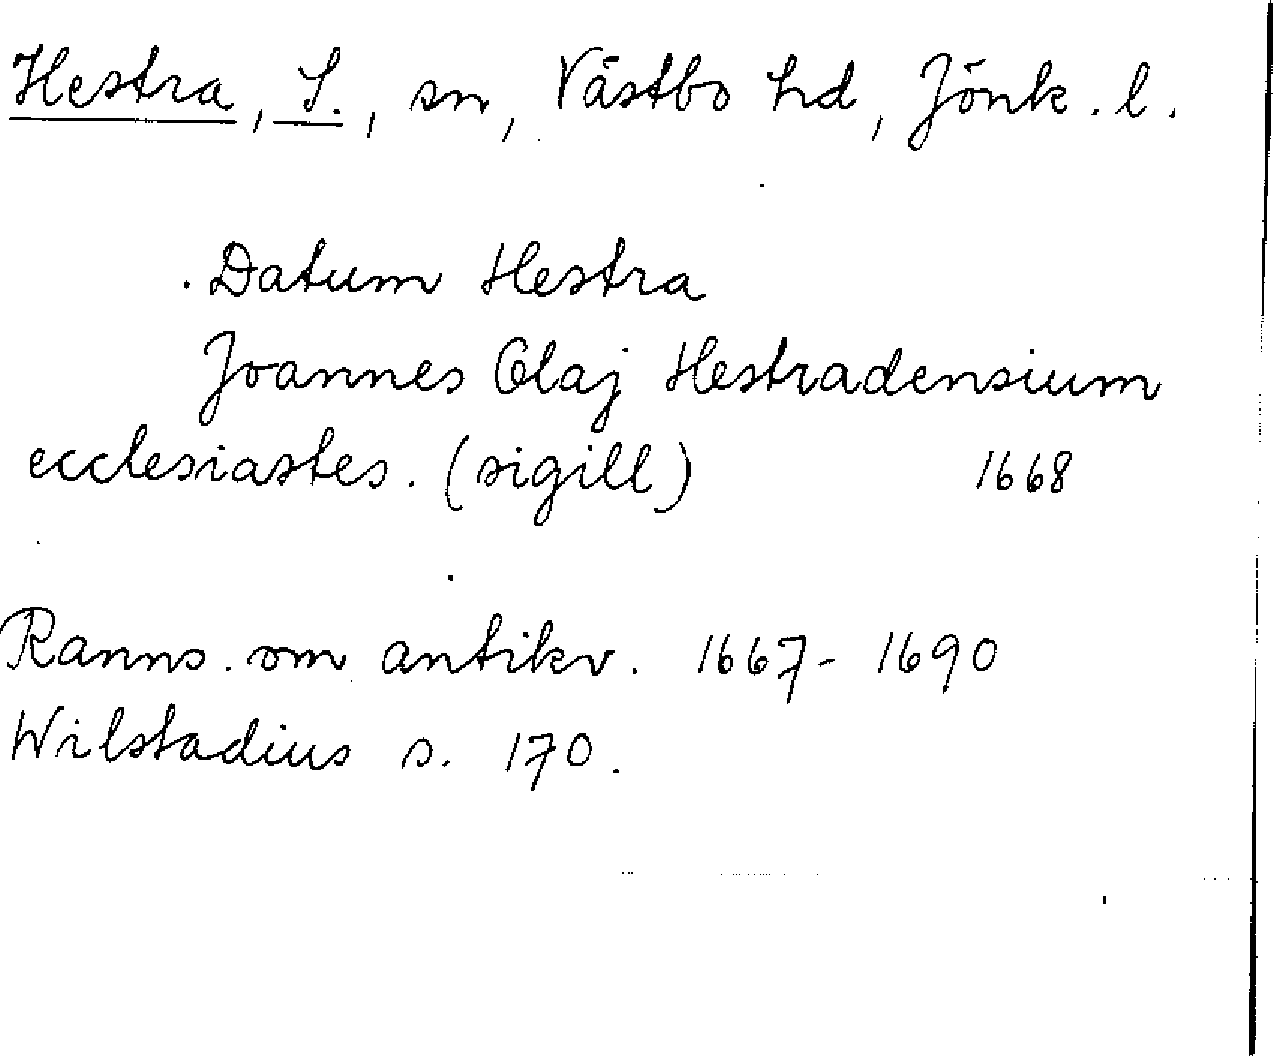 Hestra, S., sn, Västbo hd, Jönk. l.
Datum Hestra
Joannes Olaj Hestradensium
ecclesiastes. (sigill) 1668
Ranns. om antikv. 1667-1690
Wilstadius s. 170.